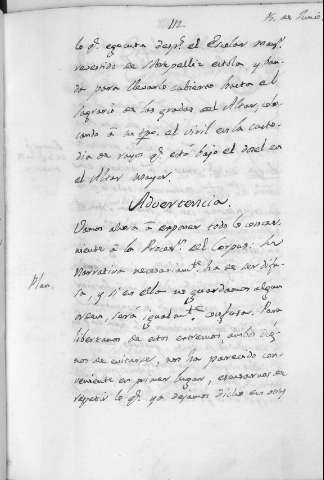 112.
15. de Junio
lo q.e egecuta desp.s el Escolar may.r
revestido de Sobrepelliz estola y van-
da para llevarlo cubierto hasta el
Sagrario de las gradas del Altar, colo-
cando á su tpo. el viril en la custo-
dia de rayos q.e está bajo el dosel en
el Altar mayor.
Advertencia.
Vamos ahora á exponer todo lo concer-
niente á la Proces.n del Corpus. La
Plan.
Narrativa necesariam.te ha de ser difu-
sa, y si en ella no guardamos algun
orden, será igualm.te confusa. Para
libertarnos de estos extremos ambos dig-
nos de evitarse, nos ha parecido con-
veniente en primer lugar, escusarnos de
repetir lo q.e ya dejamos dicho en otras